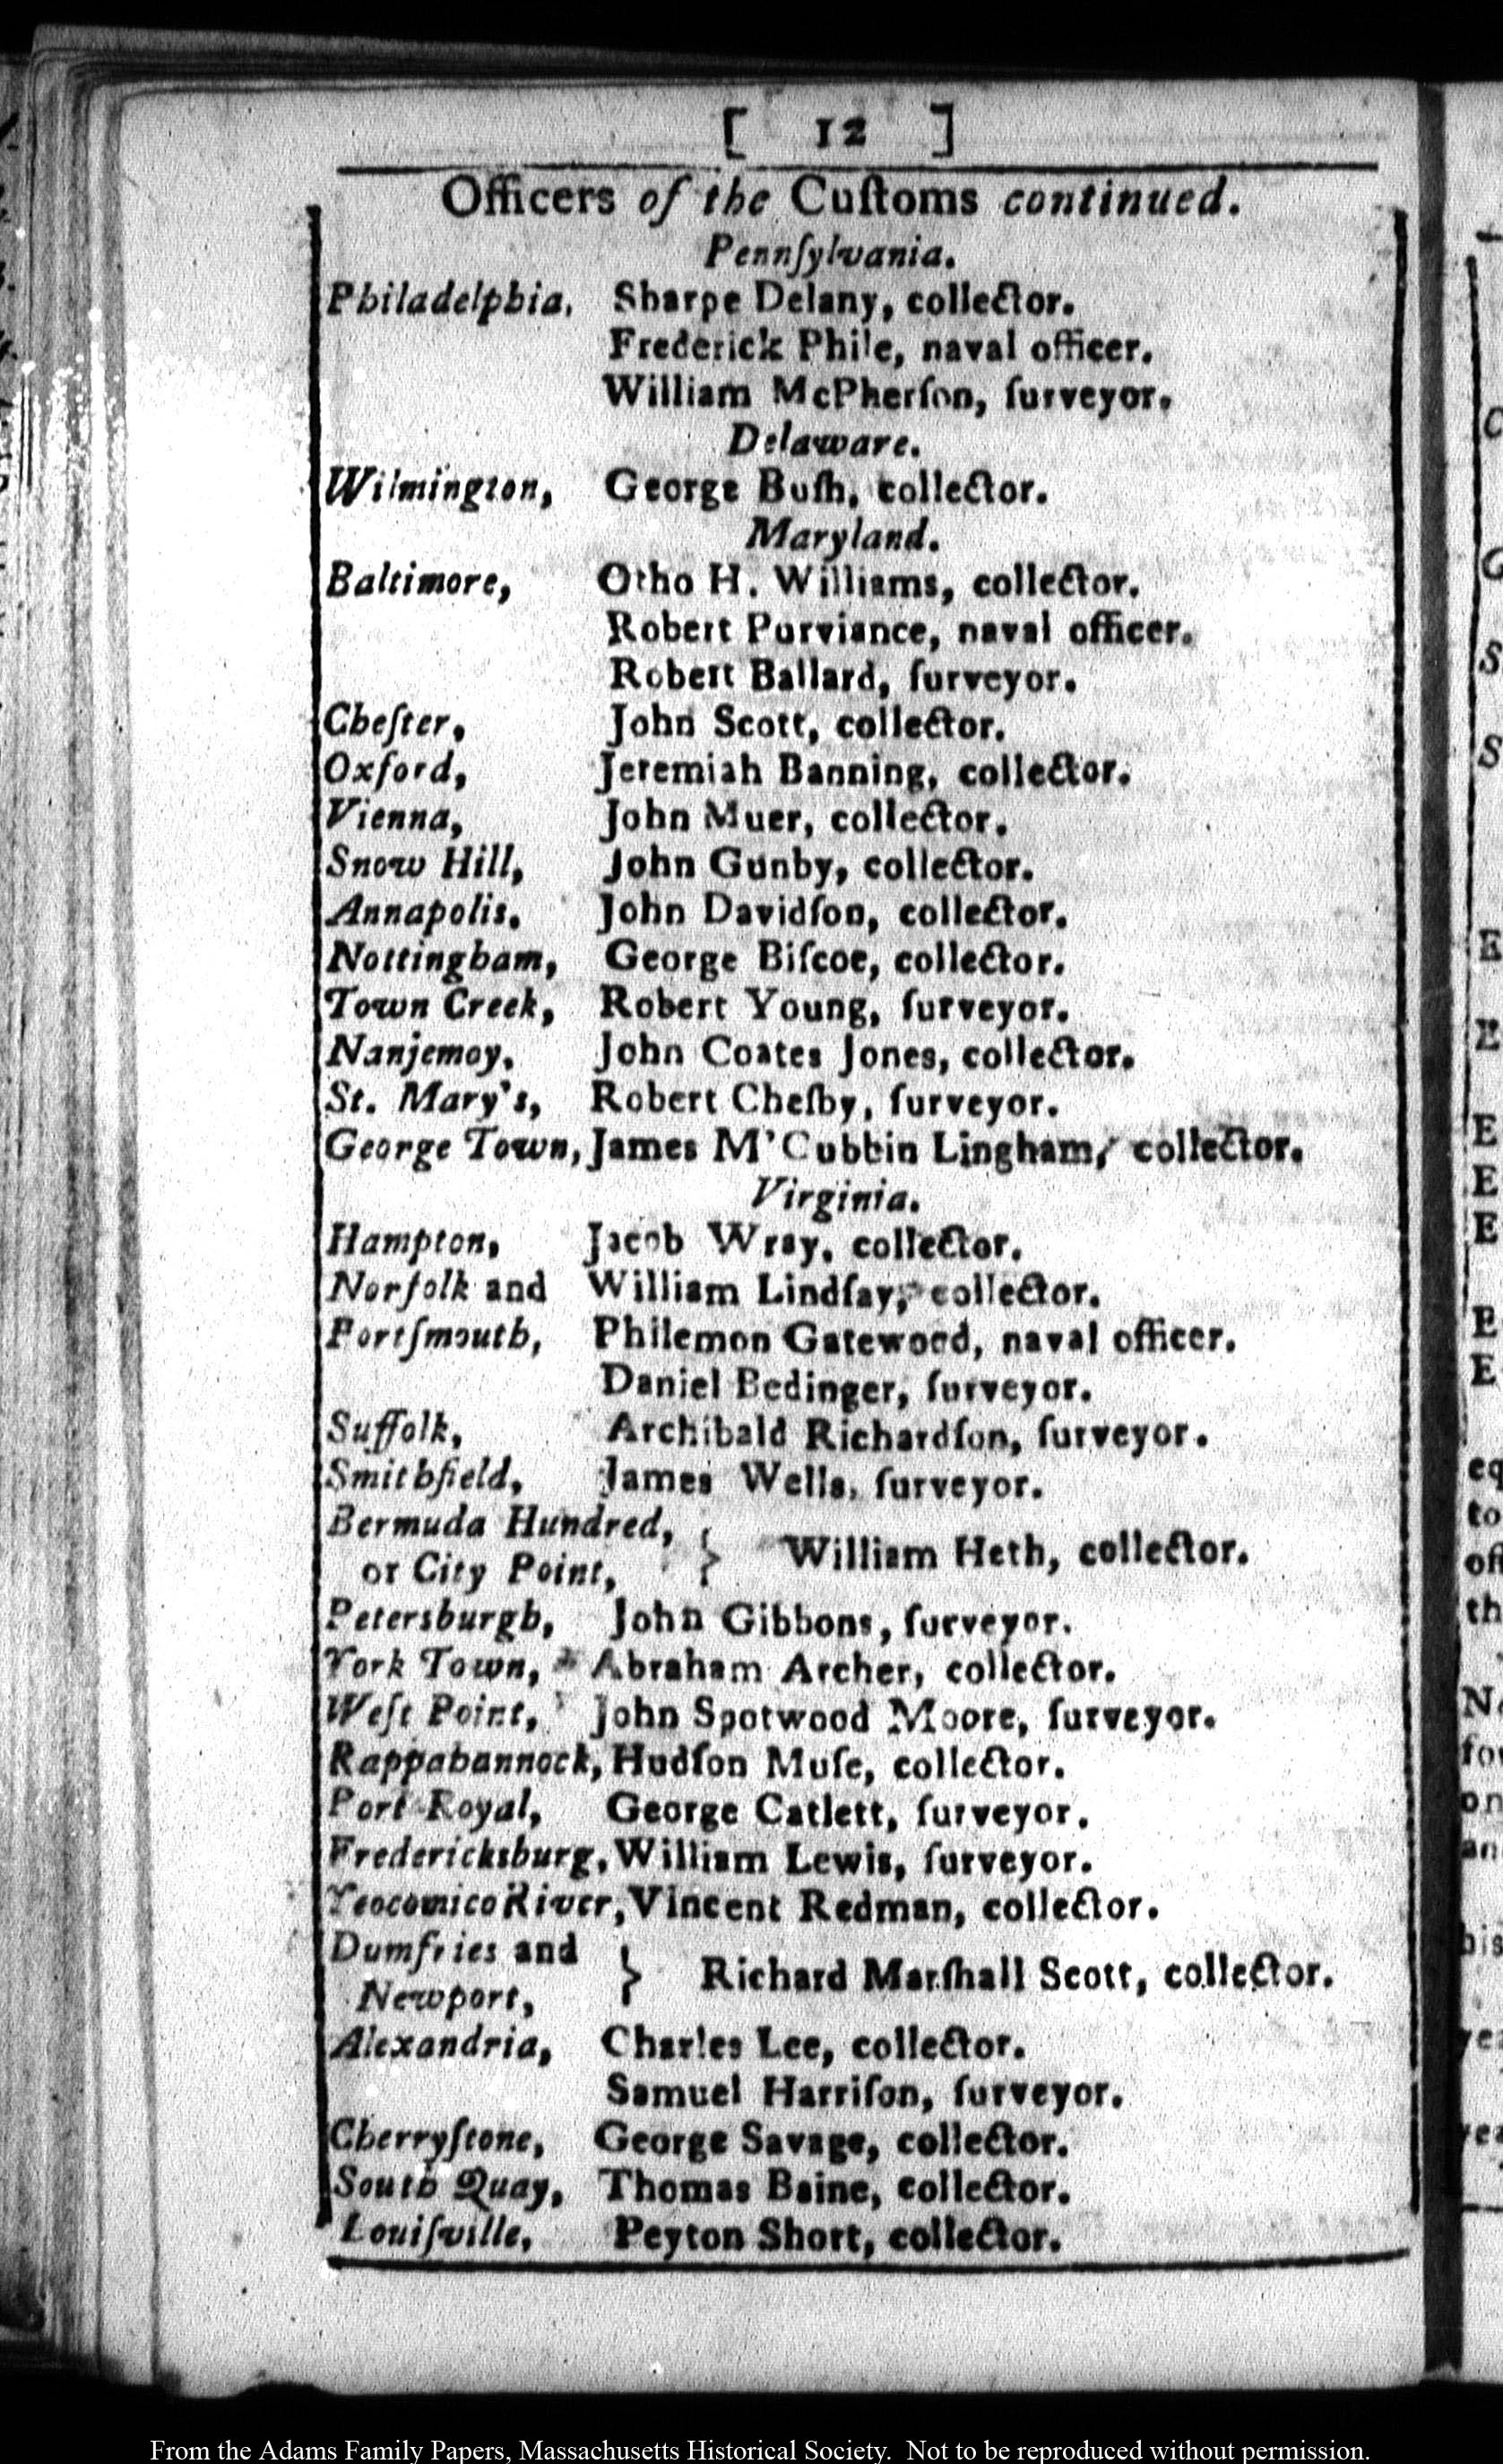 [ 12 ]
Officers of the Cuſtoms continued.
Pennſylvania.
Philadelphia, Sharpe Delany, collector.
Frederick Phile, naval officer.
William McPherſon, ſurveyor.
Delaware.
Wilmington, George Buſh, collector.
Maryland.
Baltimore, Otho H. Williams, collector.
Robert Purviance, naval officer.
Robert Ballard, ſurveyor.
Cheſter, John Scott, collector.
Oxford, Jeremiah Banning, collector.
Vienna, John Muer, collector.
Snow Hill, John Gunby, collector.
Annapolis, John Davidſon, collector.
Nottingham, George Biſcoe, collector.
Town Creek, Robert Young, ſurveyor.
Nanjemoy, John Coates Jones, collector.
St. Mary's, Robert Cheſby, ſurveyor.
George Town, James M'Cubbin Lingham, collector.
Virginia.
Hampton, Jacob Wray, collector.
Norfolk and William Lindſay, collector.
Portſmouth, Philemon Gatewood, naval officer.
Daniel Bedinger, ſurveyor.
Suffolk, Archibald Richardſon, ſurveyor.
Smithfield, James Wells, ſurveyor.
Bermuda Hundred,
or City Point, } William Heth, collector.
Petersburgh, John Gibbons, ſurveyor.
York Town, Abraham Archer, collector.
Weſt Point, John Spotwood Moore, ſurveyor.
Rappahannock, Hudſon Muſe, collector.
Port Royal, George Catlett, ſurveyor.
Fredericksburg, William Lewis, ſurveyor.
Yeocomico River, Vincent Redman, collector.
Dumfries and
Newport, } Richard Marſhall Scott, collector.
Alexandria, Charles Lee, collector.
Samuel Harriſon, ſurveyor.
Cherryſtone, George Savage, collector.
South Quay, Thomas Baine, collector.
Louiſville, Peyton Short, collector.
From the Adams Family Papers, Massachusetts Historical Society. Not to be reproduced without permission.